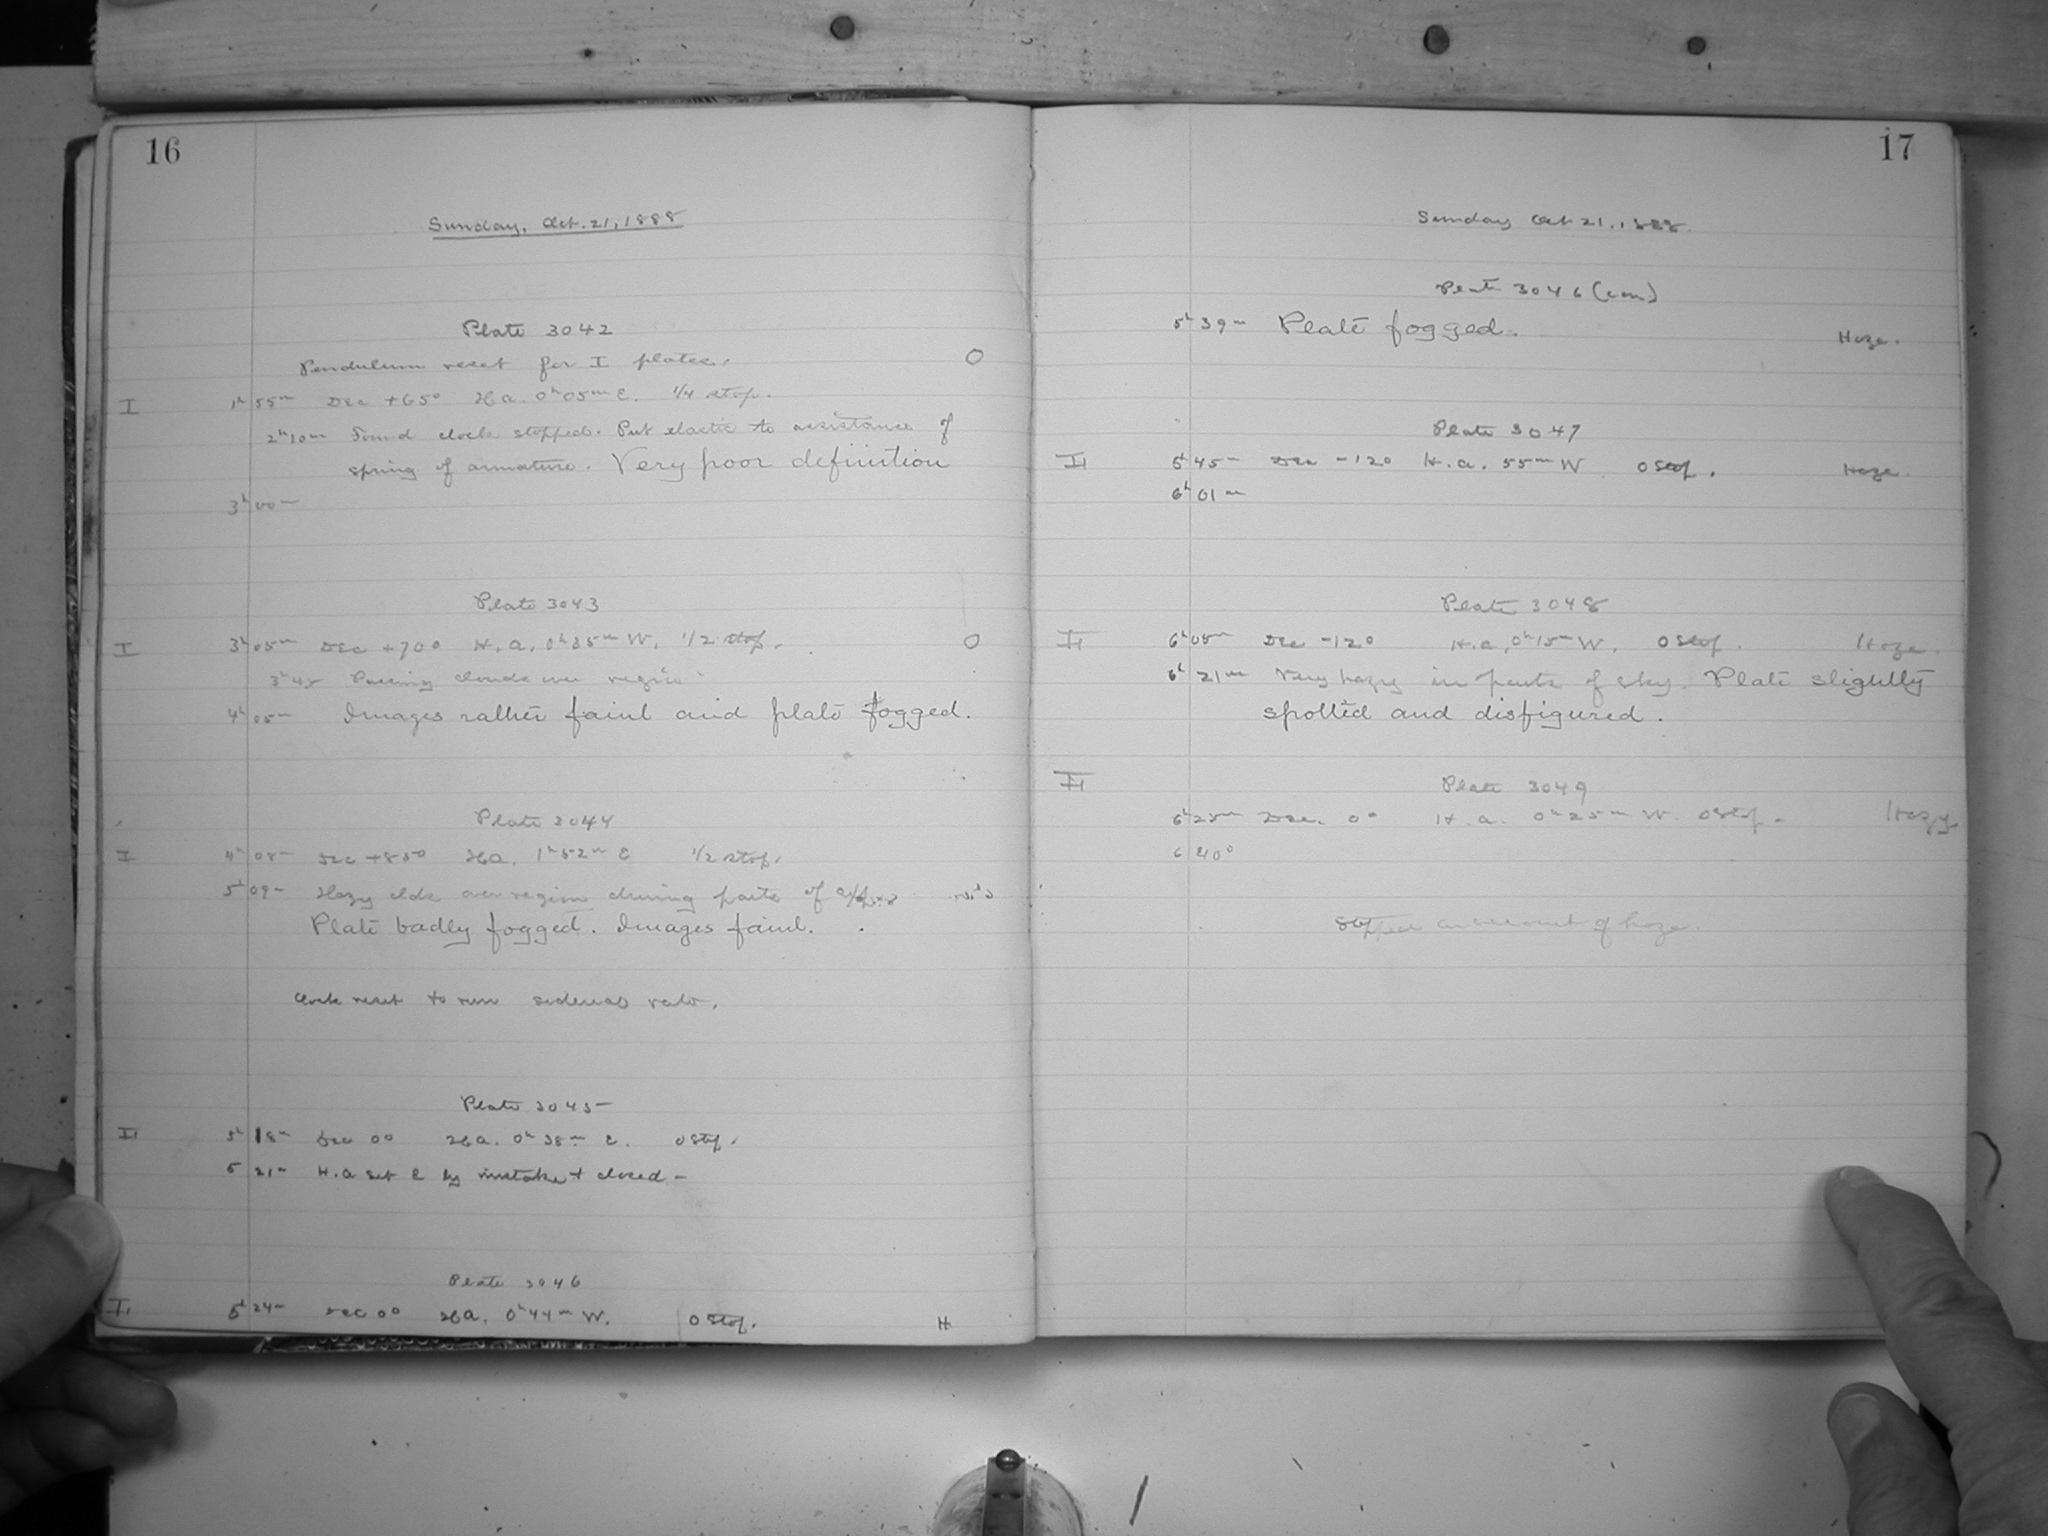 16
Sunday, Oct. 21, 1888
Plate 3042
Pendulum reset for I plates. O
I 1h 55m Dec +65° H.a. 0h 05m E. 1/4 stop.
2h 10m Found clock stopped. Put elastic to assistance of
spring of armature. Very poor definition
3h 00m
Plate 3043
I 3h 05m Dec +70° H.a. 0h 35m W. 1/2 stop. O
3h 45 Passing clouds over region
4h 05m Images rather faint and plate fogged.
Plate 3044
I 4h 08m Dec +85° H.a. 1h 52m E 1/2 stop.
5h 09m Hazy clds over region during parts of
Plate badly fogged. Images faint.
Clock reset to run sidereal rate.
Plate 3045
II 5h 18m Dec 0° H.a. 0h 38m E. 0 stop.
5 21m H.a set E by mistake + closed -
Plate 3046
II 5h 24m Dec 0° H.a. 0h 44m W. 0 stop. H
17
Sunday Oct 21, 1888.
Plate 3046 (con)
5h 39m Plate fogged. Haze.
Plate 3047
II 5h 45m Dec -12° H.a. 55m W 0 stop. Haze.
6h 01m
Plate 3048
II 6h 05m Dec -12° H.a. 0h 15m W. 0 stop. Haze.
6h 21m Very hazy in parts of sky. Plate slightly
spotted and disfigured.
II Plate 3049
6h 25m Dec. 0° H.a. 0h 25m W. 0 stop. Hazy
6 40°
Stopped on account of haze.